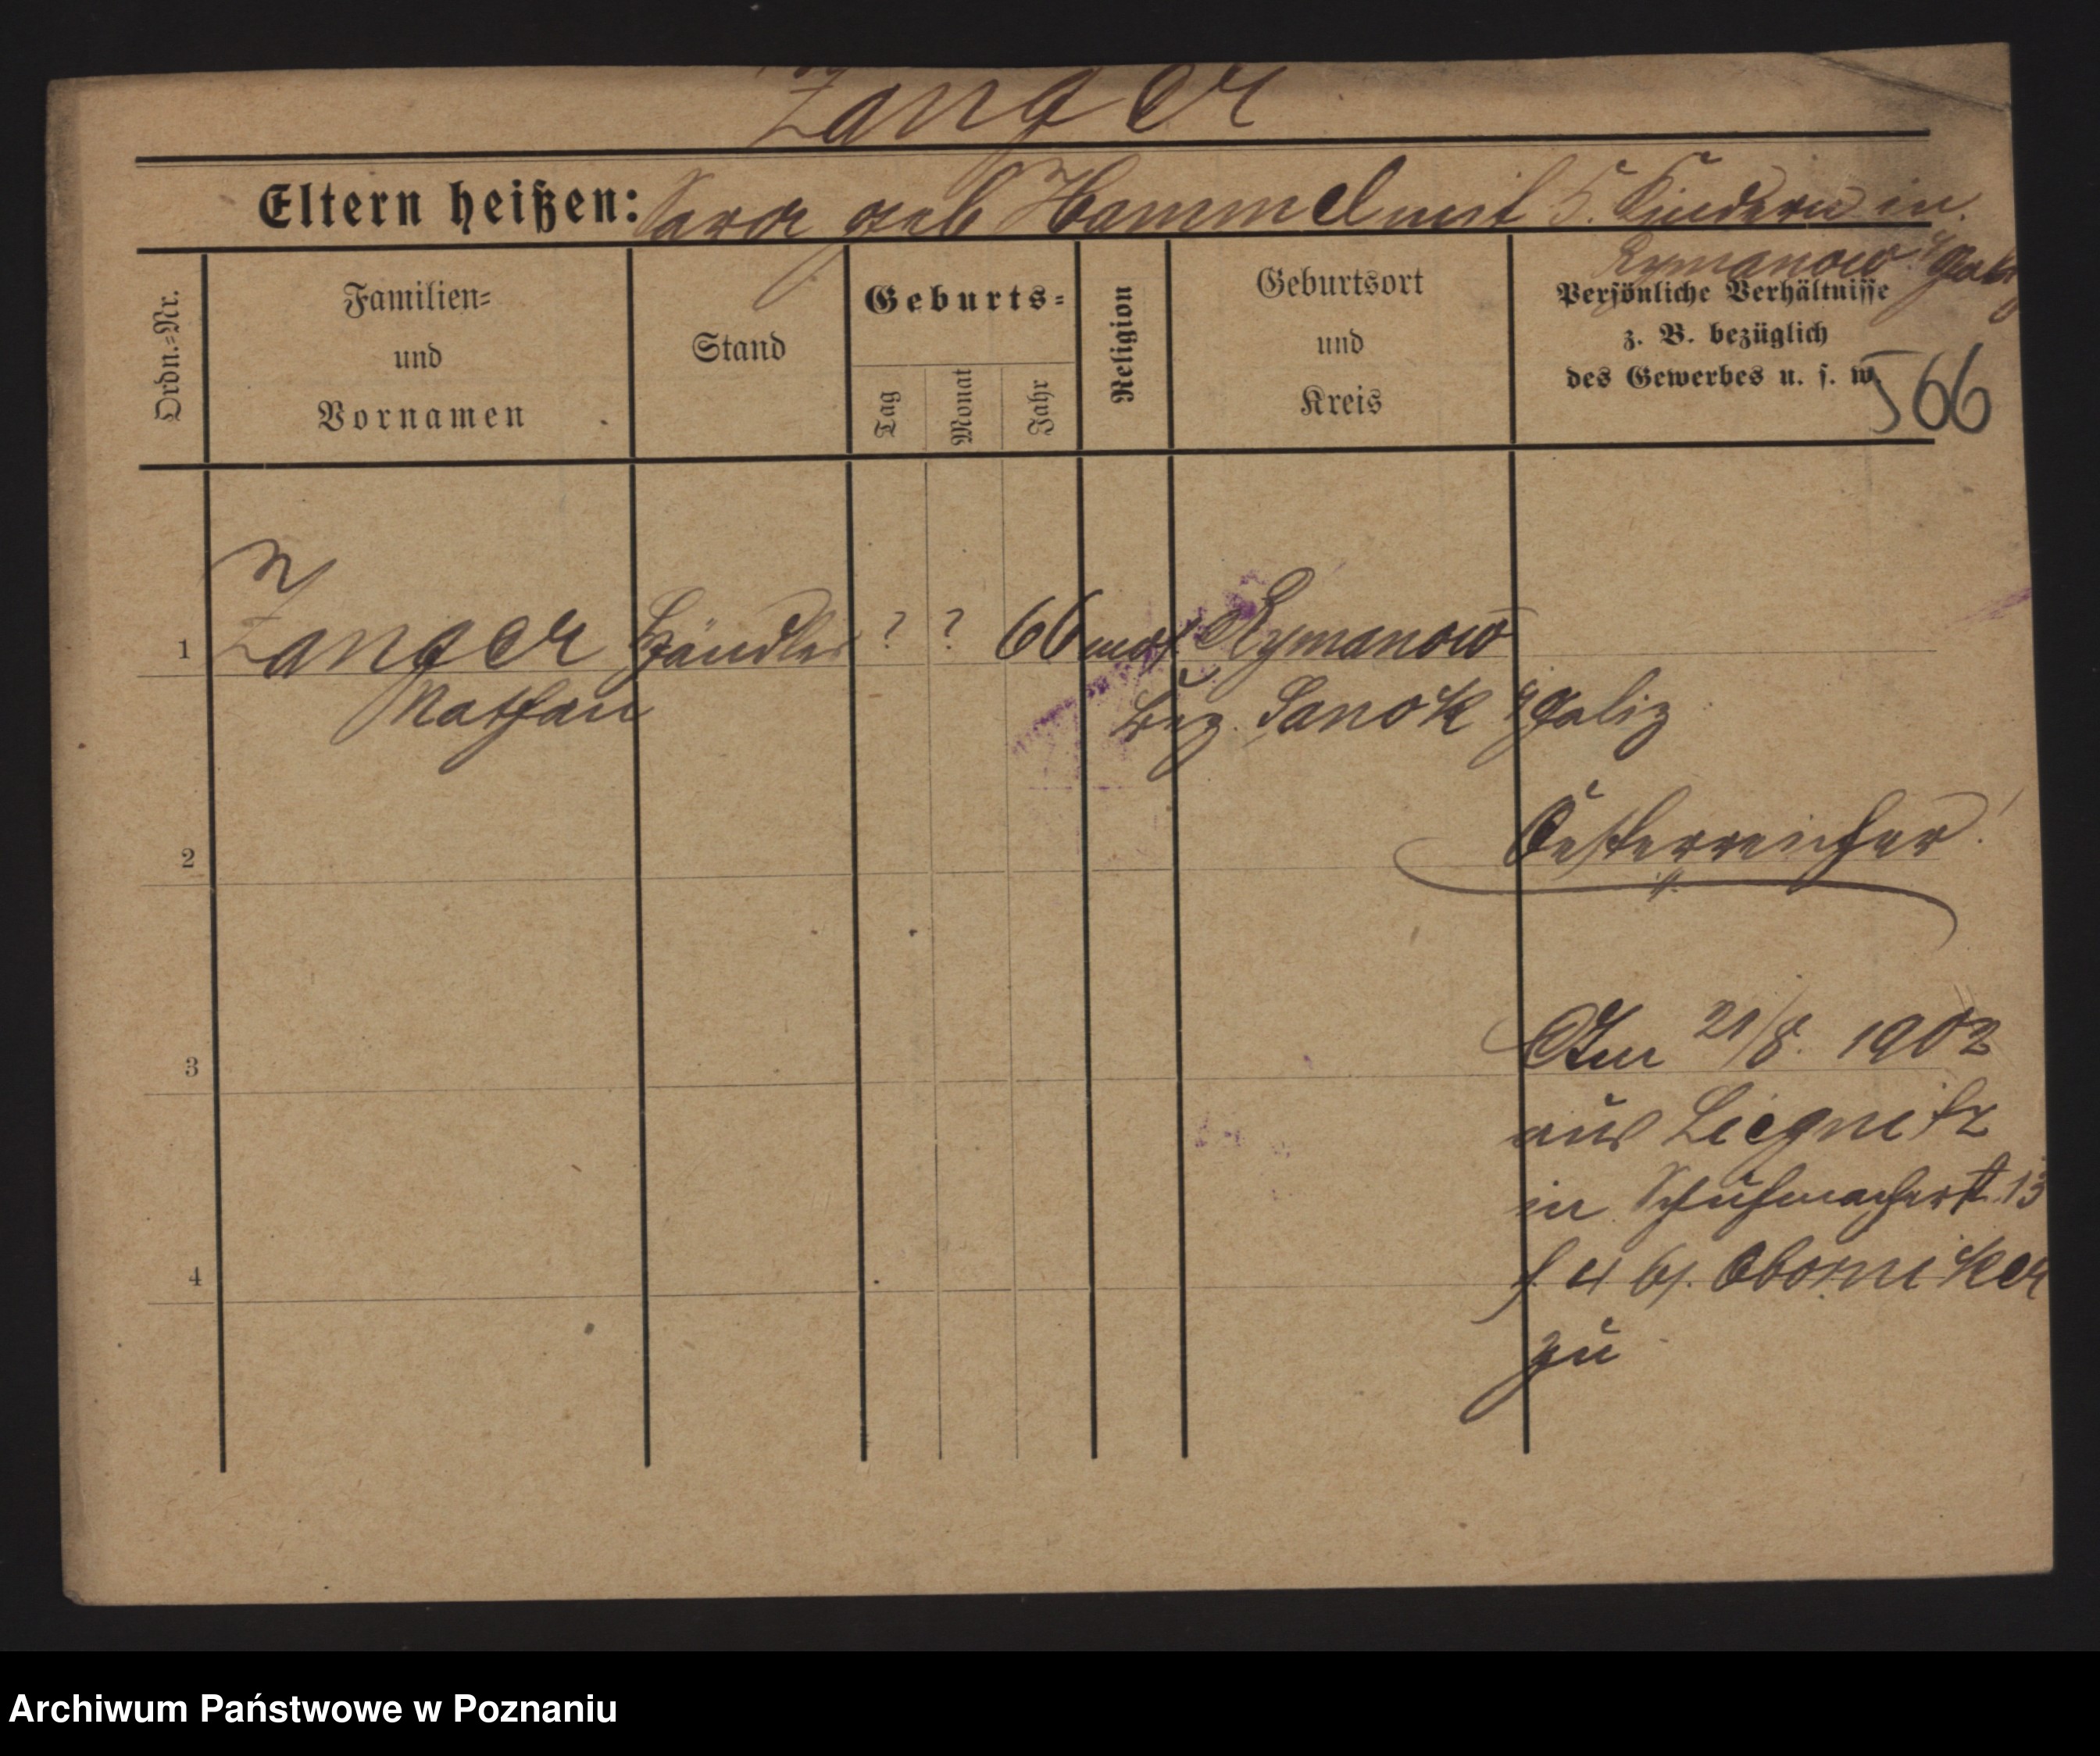 Zanger
Eltern heißen: Sara geb Hammel mit 5. Kindern in.
Rymanow Galiz
Ordn.=Nr.
Familien=
und
Vornamen
Stand
Geburts=
Tag
Monat
Jahr
Religion
Geburtsort
und
Kreis
Persönliche Verhältnisse
z. B. bezüglich
des Gewerbes u. s. w.
566
1 Zanger Händler ? ? 66 mos Rymanow
Nathan Bez. Sanok Galiz
2 Oesterreicher!
3 Am 21/8. 1902
aus Liegnitz
in Schuhmacherst. 13
4 bj. Oborniker
zu
Archiwum Państwowe w Poznaniu